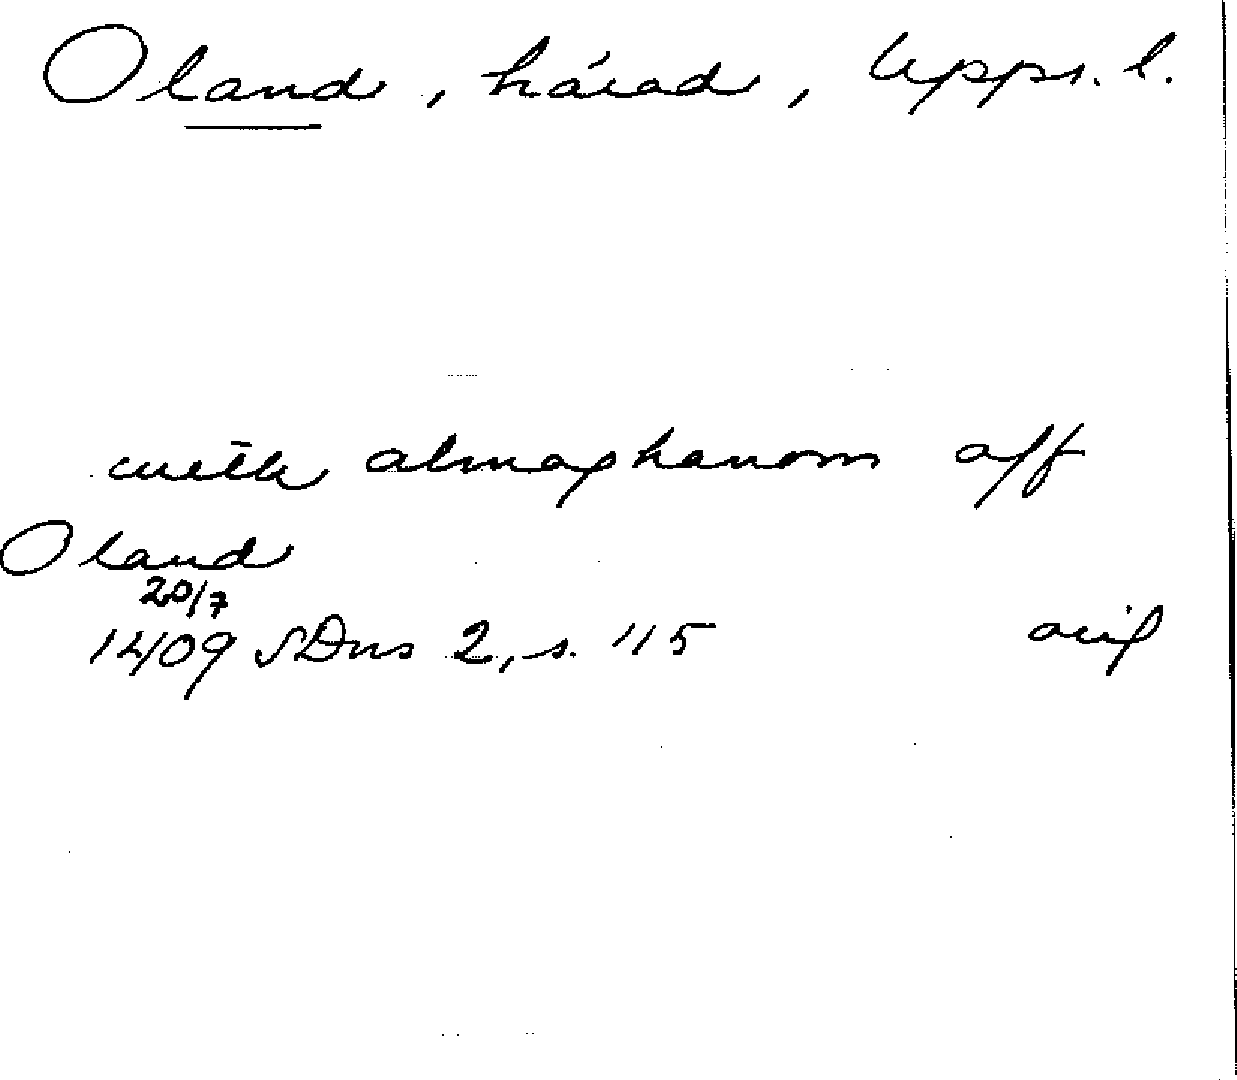 Oland, härad, Upps. l.
with almoghanom aff
Oland
20/7
1409 SDns 2, s. 115 avs